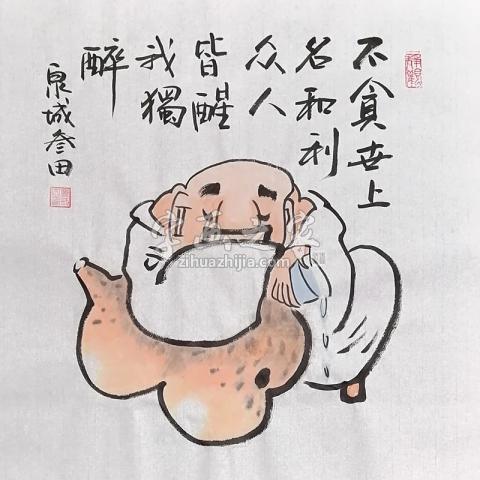 不貪世上
名和利
众人
皆醒
我獨
醉
泉城叁田
字画之家
zihuazhijia.com